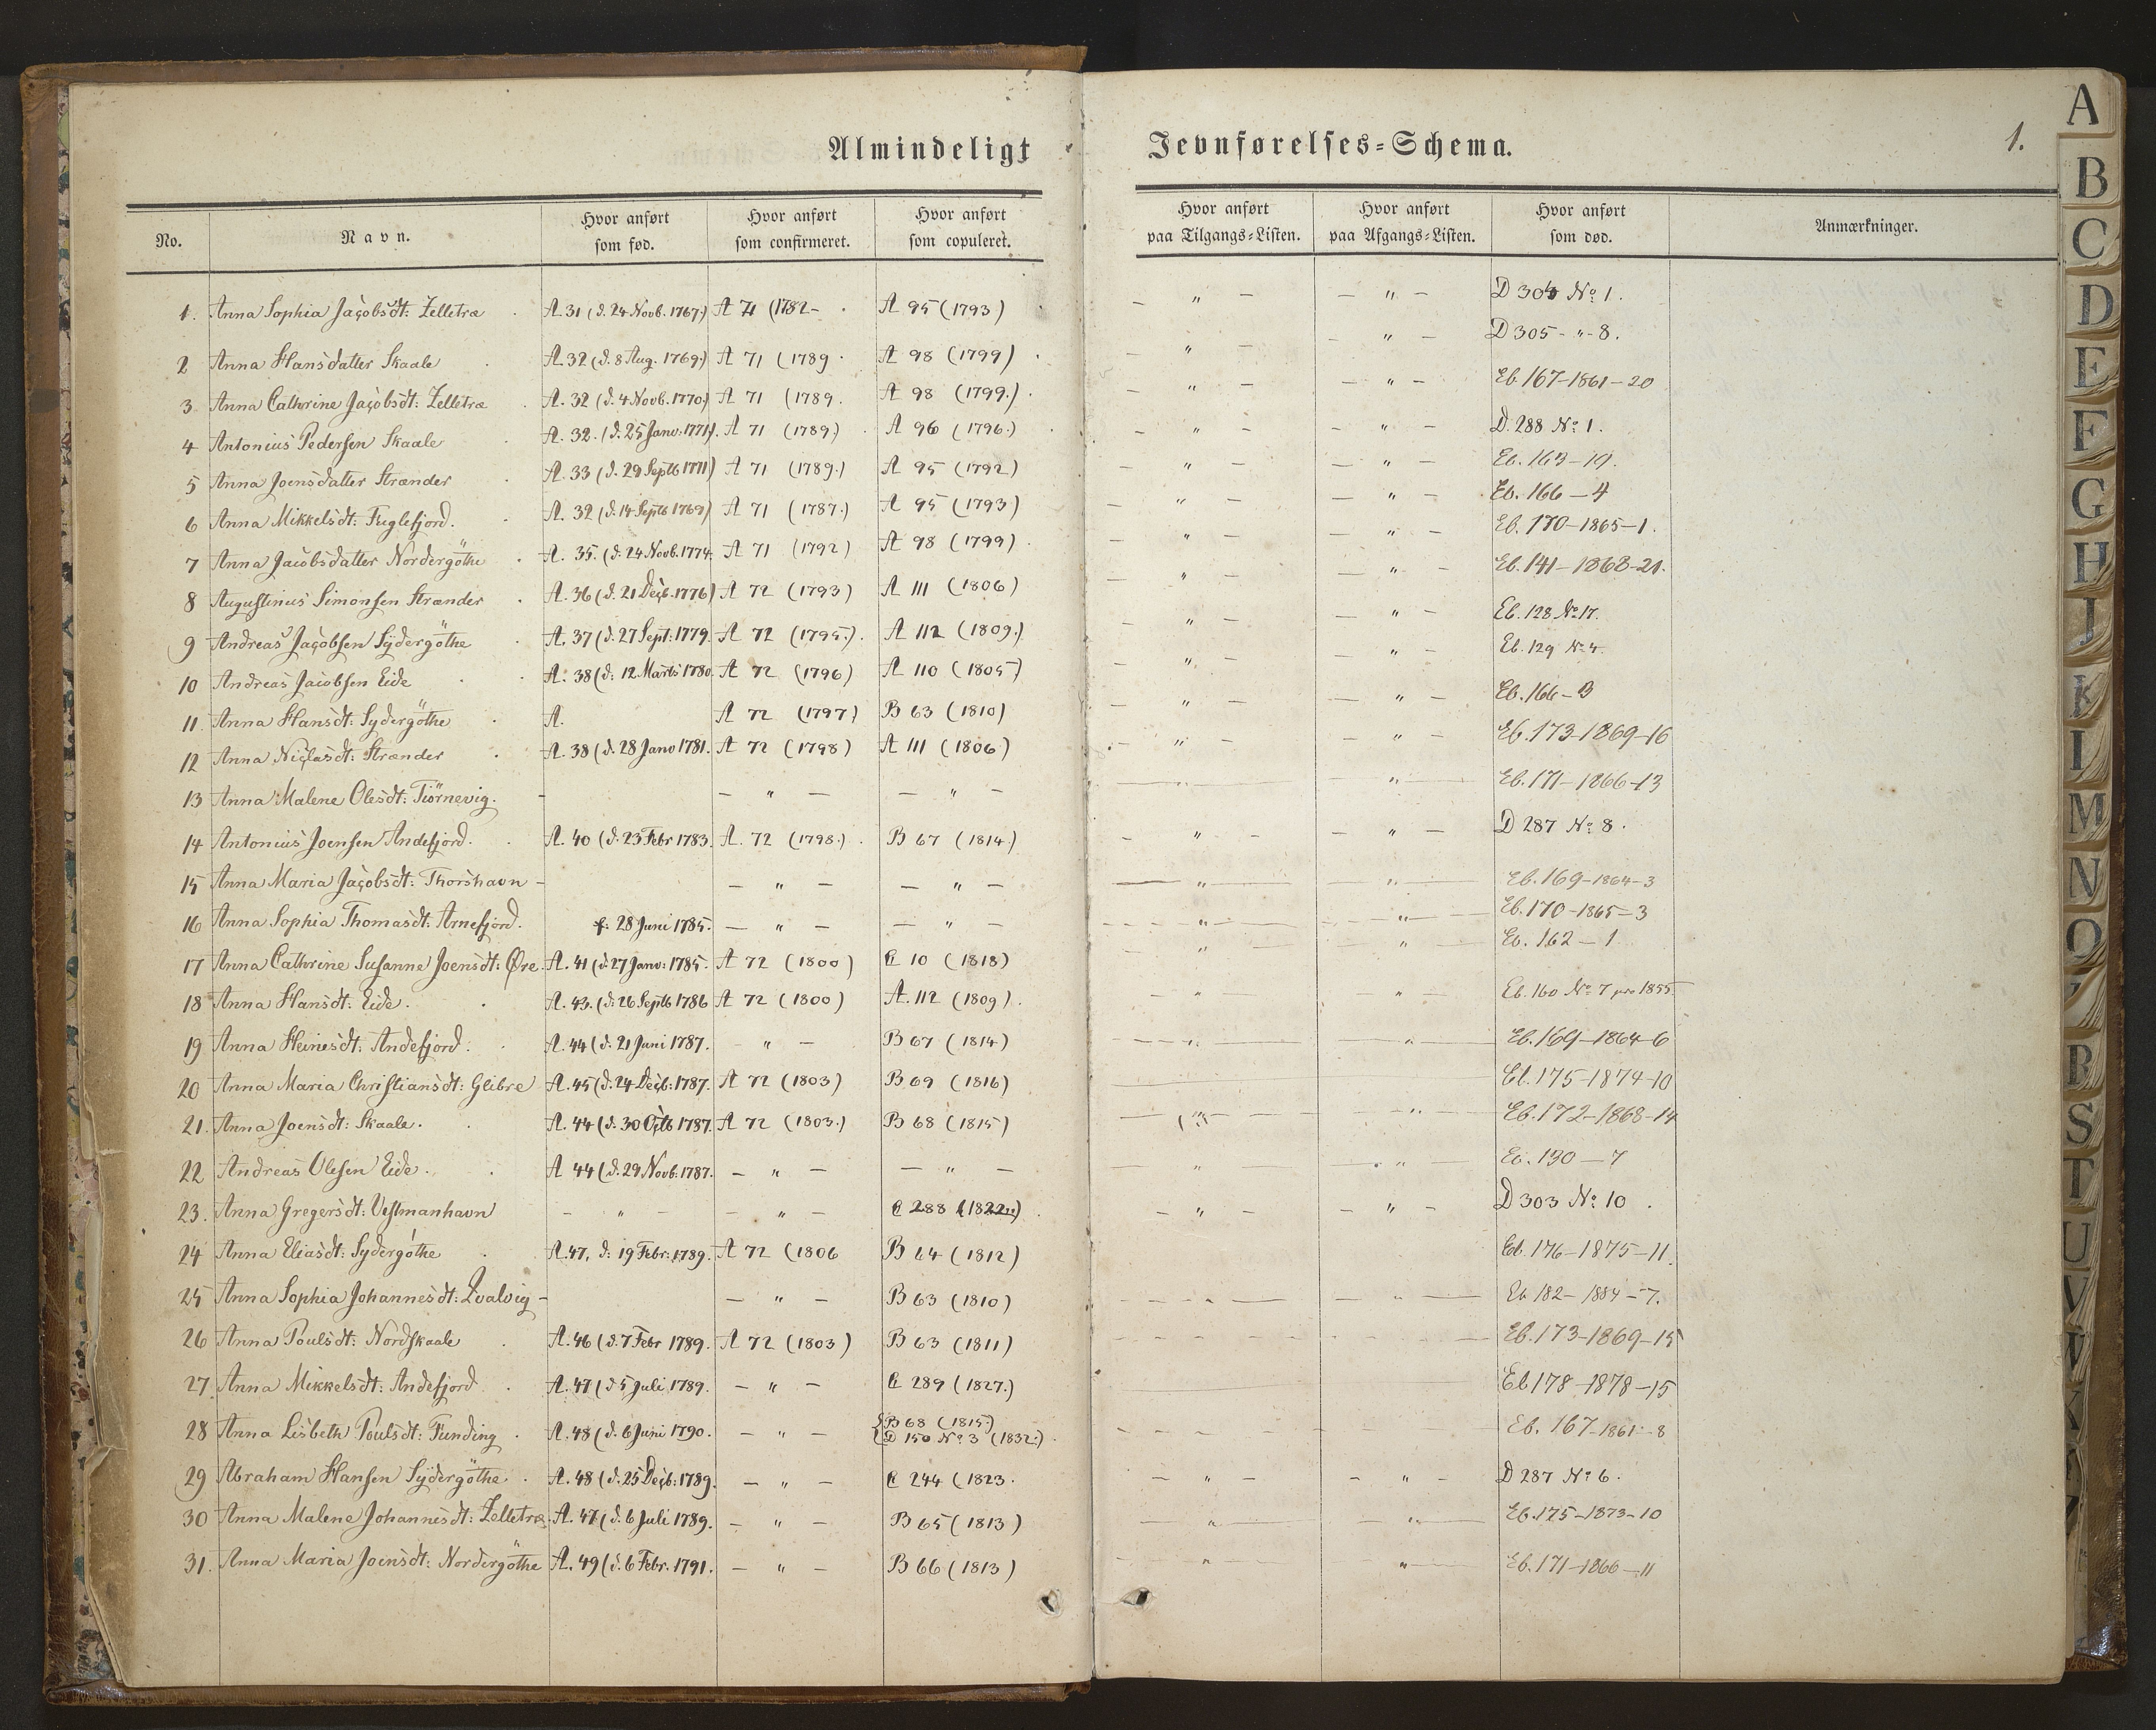 Almindeligt Jevnførelses=Schema. 1.
No. Navn. Hvor anført som fød. Hvor anført som confirmeret. Hvor anført som copuleret. Hvor anført paa Tilgangs=Listen. Hvor anført paa Afgangs=Listen. Hvor anført som død. Anmærkninger.
1. Anna Sophia Jacobsdt: Zelletræ A. 31 (d. 24 Novb. 1767.) A 71 (1782- A 95 (1793) — „ — — „ — D 304 No: 1.
2 Anna Hansdatter Skaale A. 32 (d. 8 Aug. 1769.) A 71 (1789 A 98 (1799) — „ — — „ — D 305 - „ - 8.
3 Anna Cathrine Jacobsdt: Zelletræ A. 32 (d. 4 Novb. 1770.) A 71 (1789. A 98 (1799.) — „ — — „ — Eb 167-1861-20
4 Antonius Pedersen Skaale A. 32. (d. 25 Janv: 1771). A 71 (1789) A 96 (1796.) — „ — — „ — D. 288 No: 1.
5 Anna Joensdatter Strænder A. 33 (d. 29 Septb 1771) A 71 (1789.) A 95 (1792) — „ — — „ — Eb. 163-19.
6 Anna Mikkelsdt: Fuglefjord. A. 32 (d. 14 Septb 1769) A 71 (1787.) A 95 (1793) — „ — — „ — Eb. 166-4
7 Anna Jacobsdatter Nordergöthe A. 35. (d. 24 Novb. 1774. A 71 (1792) A 98 (1799) — „ — — „ — Eb. 170-1865-1.
8 Augustinus Simonsen Strænder A. 36 (d. 21 Decb. 1776) A 72 (1793) A 111 (1806) — „ — — „ — Eb. 141-1868-21.
9 Andreas Jacobsen Sydergöthe A. 37 (d. 27 Sept: 1779. A 72 (1795.) A 112 (1809.) — „ — — „ — Eb. 128 No 17.
10 Andreas Jacobsen Eide A. 38 (d: 12 Marts 1780. A 72 (1796) A 110 (1805) — „ — — „ — Eb. 129 No 4.
11. Anna Hansdt: Sydergöthe A. A 72 (1797) B 63 (1810) — „ — — „ — Eb. 166-
12 Anna Niclasdt: Strænder A. 38 (d. 28 Janv 1781. A 72 (1798) A 111 (1806) — „ — — „ — Eb. 173-1869-16
13 Anna Malene Olesdt: Tiörnevig. — — „ — — „ — — „ — — „ — Eb. 171-1866-13
14 Antonius Joensen Andefjord. A. 40 (d. 23 Febr 1783. A. 72 (1798.) B 67 (1814.) — „ — — „ — D 287 No: 8.
15 Anna Maria Jacobsdt: Thorshavn — — „ — — „ — — „ — — „ — Eb. 169-1864-3
16 Anna Sophia Thomasdt: Arnefjord. f: 28 Juni 1785. — „ — — „ — — „ — — „ — Eb. 170-1865-3
17 Anna Cathrine Susanne Joensdt: Øre. A. 41 (d. 27 Janv: 1785. A 72 (1800) C 10 (1818) — „ — — „ — Eb. 162-1
18 Anna Hansdt: Eide. A. 43. (d: 26 Septb 1786 A 72 (1800) A. 112 (1809). — „ — — „ — Eb. 160 No: 7 pro 1855.
19 Anna Heinesdt: Andefjord. A. 44 (d. 21 Juni 1787. — „ — B 67 (1814) — „ — — „ — Eb. 169-1864-6
20 Anna Maria Christiansdt: Glibre A. 45 (d. 24 Decb: 1787. A 72 (1803) B 69 (1816) Eb. 175-1874-10
21. Anna Joensdt: Skaale. A. 44 (d. 30 Octb 1787. A 72 (1803.) B 68 (1815) — „ — — „ — Eb. 172-1868-14
22 Andreas Olesen Eide. A 44 (d. 29 Novb: 1787. — „ — — „ — „ — „ — Eb. 130-7
23. Anna Gregersdt: Vestmanhavn — „ — — „ — C 288 (1822.) — „ — — „ — D 303 No: 10.
24 Anna Eliasdt: Sydergöthe A. 47, d: 19 Febr: 1789. A 72 (1806 B 64 (1812) Eb. 176-1875-11.
25 Anna Sophia Johannesdt: Qvalvig — — „ — B 63 (1810) — „ — — „ — Eb 182-1884-7.
26 Anna Poulsdt: Nordskaale A. 46 (d. 7 Febr 1789. A 72 (1803) B 63 (1811) — — — — Eb. 173-1869-15
27. Anna Mikkelsdt: Andefjord A. 47 (d 5 Juli 1789. — „ — C 289 (1827.) — — Eb 178-1878-15
28 Anna Lisbeth Poulsdt: Funding A. 48 (d. 6 Juni 1790. — „ — {B 68 (1815.) {D 150 No: 3 (1832.) — — — — Eb. 167-1861-8
29 Abraham Hansen Sydergöthe A. 48 (d. 25 Decb: 1789. — „ — C 244 (1823. — „ — — „ — D 287 No: 6.
30 Anna Malene Johannesdt: Zelletræ A. 47 (d. 6 Juli 1789. — „ — B 65 (1813) — „ — — „ — Eb. 175-1873-10
31. Anna Maria Joensdt: Nordergöthe A. 49 (d. 6 Febr. 1791. — „ — B 66 (1813) — „ — „ — Eb. 171-1866-11
A
B
C
D
E
F
G
H
J
K
L
M
N
O
R
S
T
U
V
W